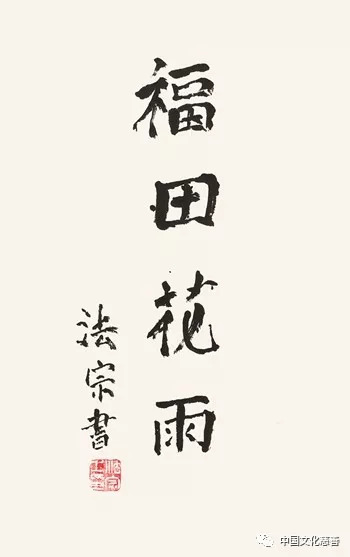 福田花雨
法宗書
中国文化慈香